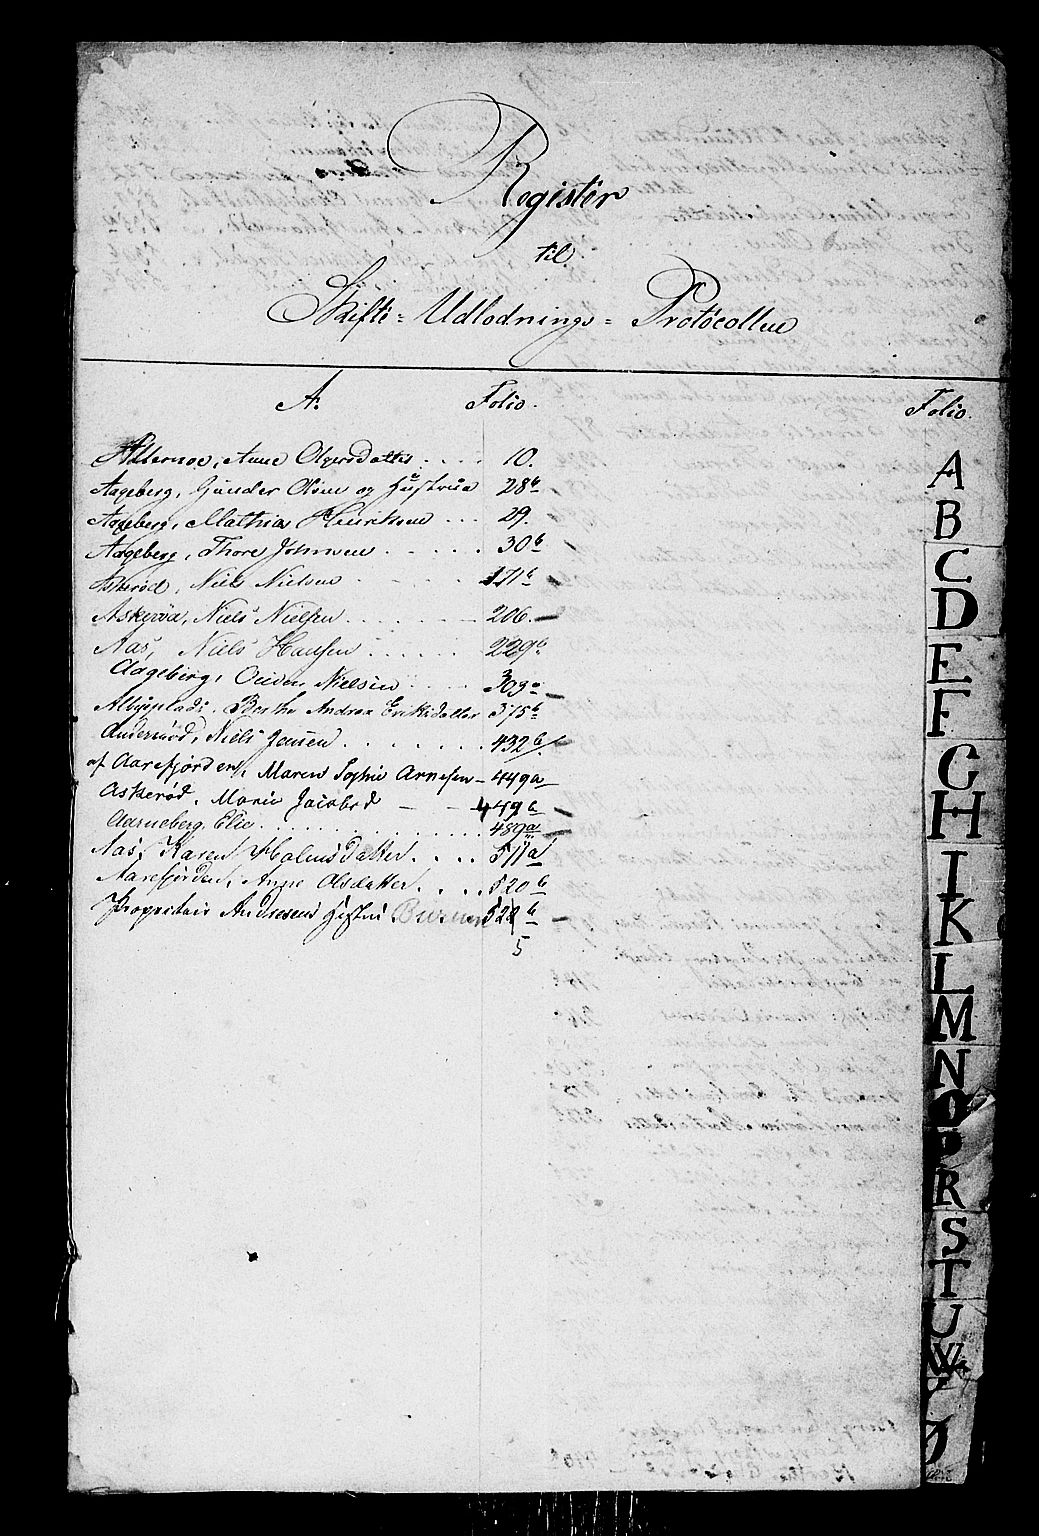 Register
til
Skifte = Udlodnings = Protocollen
A. Folio. Folio.
Anne Olgersdatter . . . . 10.
Aageberg, Gunder Olsen og Hustrue 28b
Aageberg, Mathias Henriksen . . . 29.
Aageberg, Thore Johnsen . . . . . 30b
Askerød, Niels Nielsen . . . . . 171b
Askerød, Niels Nielsen . . . . . . 206.
Aas, Niels Hansen . . . . . . 229b
Aageberg, Nielsen . . . . 303a
Berthe Andrea Eriksdatter 375b
Andersrød, Niels Jensen . . . . . . . 432b
af Aarefjorden, Maren Sophie Arnesen - 449a
Askerød, Marie Jacobsd — — 479b
Aarneberg, Elie . . . . . . . . . . . . 489a
Aas, Karen Holmsdatter . . . . 511a
Aarefjorden, Anne Olsdatter . . . . 520b
Proprietair Andresens Hustru 522b
5
A
B
C
D
E
F
G
H
I
K
L
M
N
O
P
R
S
T
U
W